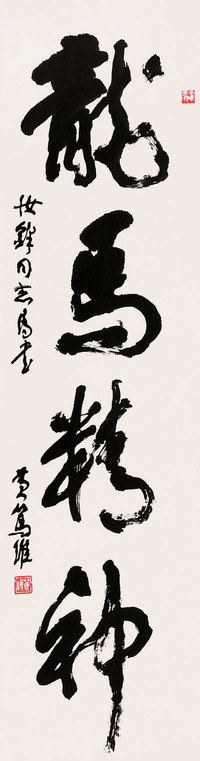 龍馬精神
汝鋒同志属书
黄篤維